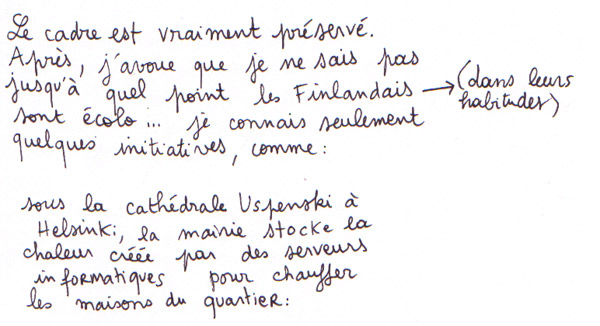 Le cadre est vraiment préservé.
Après, j'avoue que je ne sais pas
jusqu'à quel point les Finlandais → (dans leurs
sont écolo... je connais seulement habitudes)
quelques initiatives, comme :
sous la cathédrale Uspenski à
Helsinki, la mairie stocke la
chaleur créée par des serveurs
informatiques pour chauffer
les maisons du quartier :